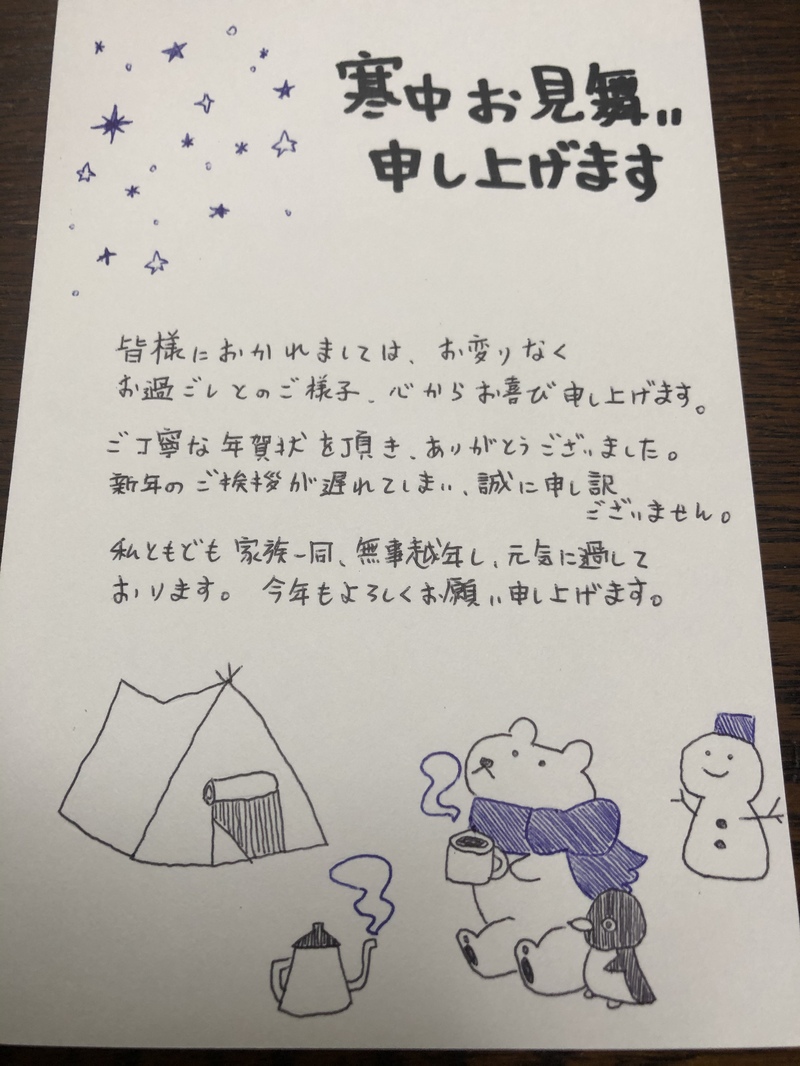 寒中お見舞い
申し上げます
皆様におかれましては、お変りなく
お過ごしとのご様子、心からお喜び申し上げます。
ご丁寧な年賀状を頂き、ありがとうございました。
新年のご挨拶が遅れてしまい、誠に申し訳
ございません。
私ともども家族一同、無事越年し、元気に過して
おります。 今年もよろしくお願い申し上げます。